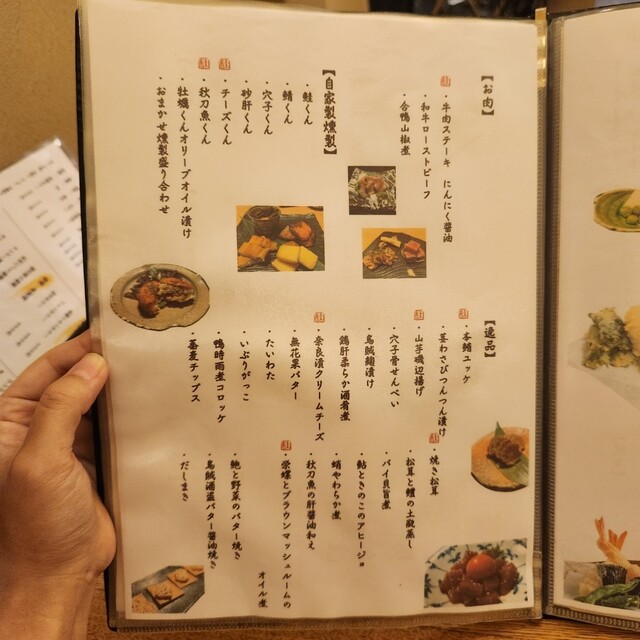 【お肉】
・牛肉ステーキ にんにく醤油
・和牛ローストビーフ
・合鴨山椒煮
【自家製燻製】
・鮭くん
・鯖くん
・穴子くん
・砂肝くん
・チーズくん
・秋刀魚くん
・牡蠣くんオリーブオイル漬け
・おまかせ燻製盛り合わせ
【逸品】
・本鮪ユッケ
・茎わさびつんつん漬け
・山芋磯辺揚げ
・穴子骨せんべい
・烏賊麹漬け
・鶏肝柔らか酒肴煮
・奈良漬クリームチーズ
・無花果バター
・たいわた
・いぶりがっこ
・鴨時雨煮コロッケ
・蕎麦チップス
・焼き松茸
・松茸と鱧の土瓶蒸し
・バイ貝旨煮
・鮎ときのこのアヒージョ
・蛸やわらか煮
・秋刀魚の肝醤油和え
・栄螺とブラウンマッシュルームの
オイル煮
・鮑と野菜のバター焼き
・烏賊酒盗バター醤油焼き
・だしまき